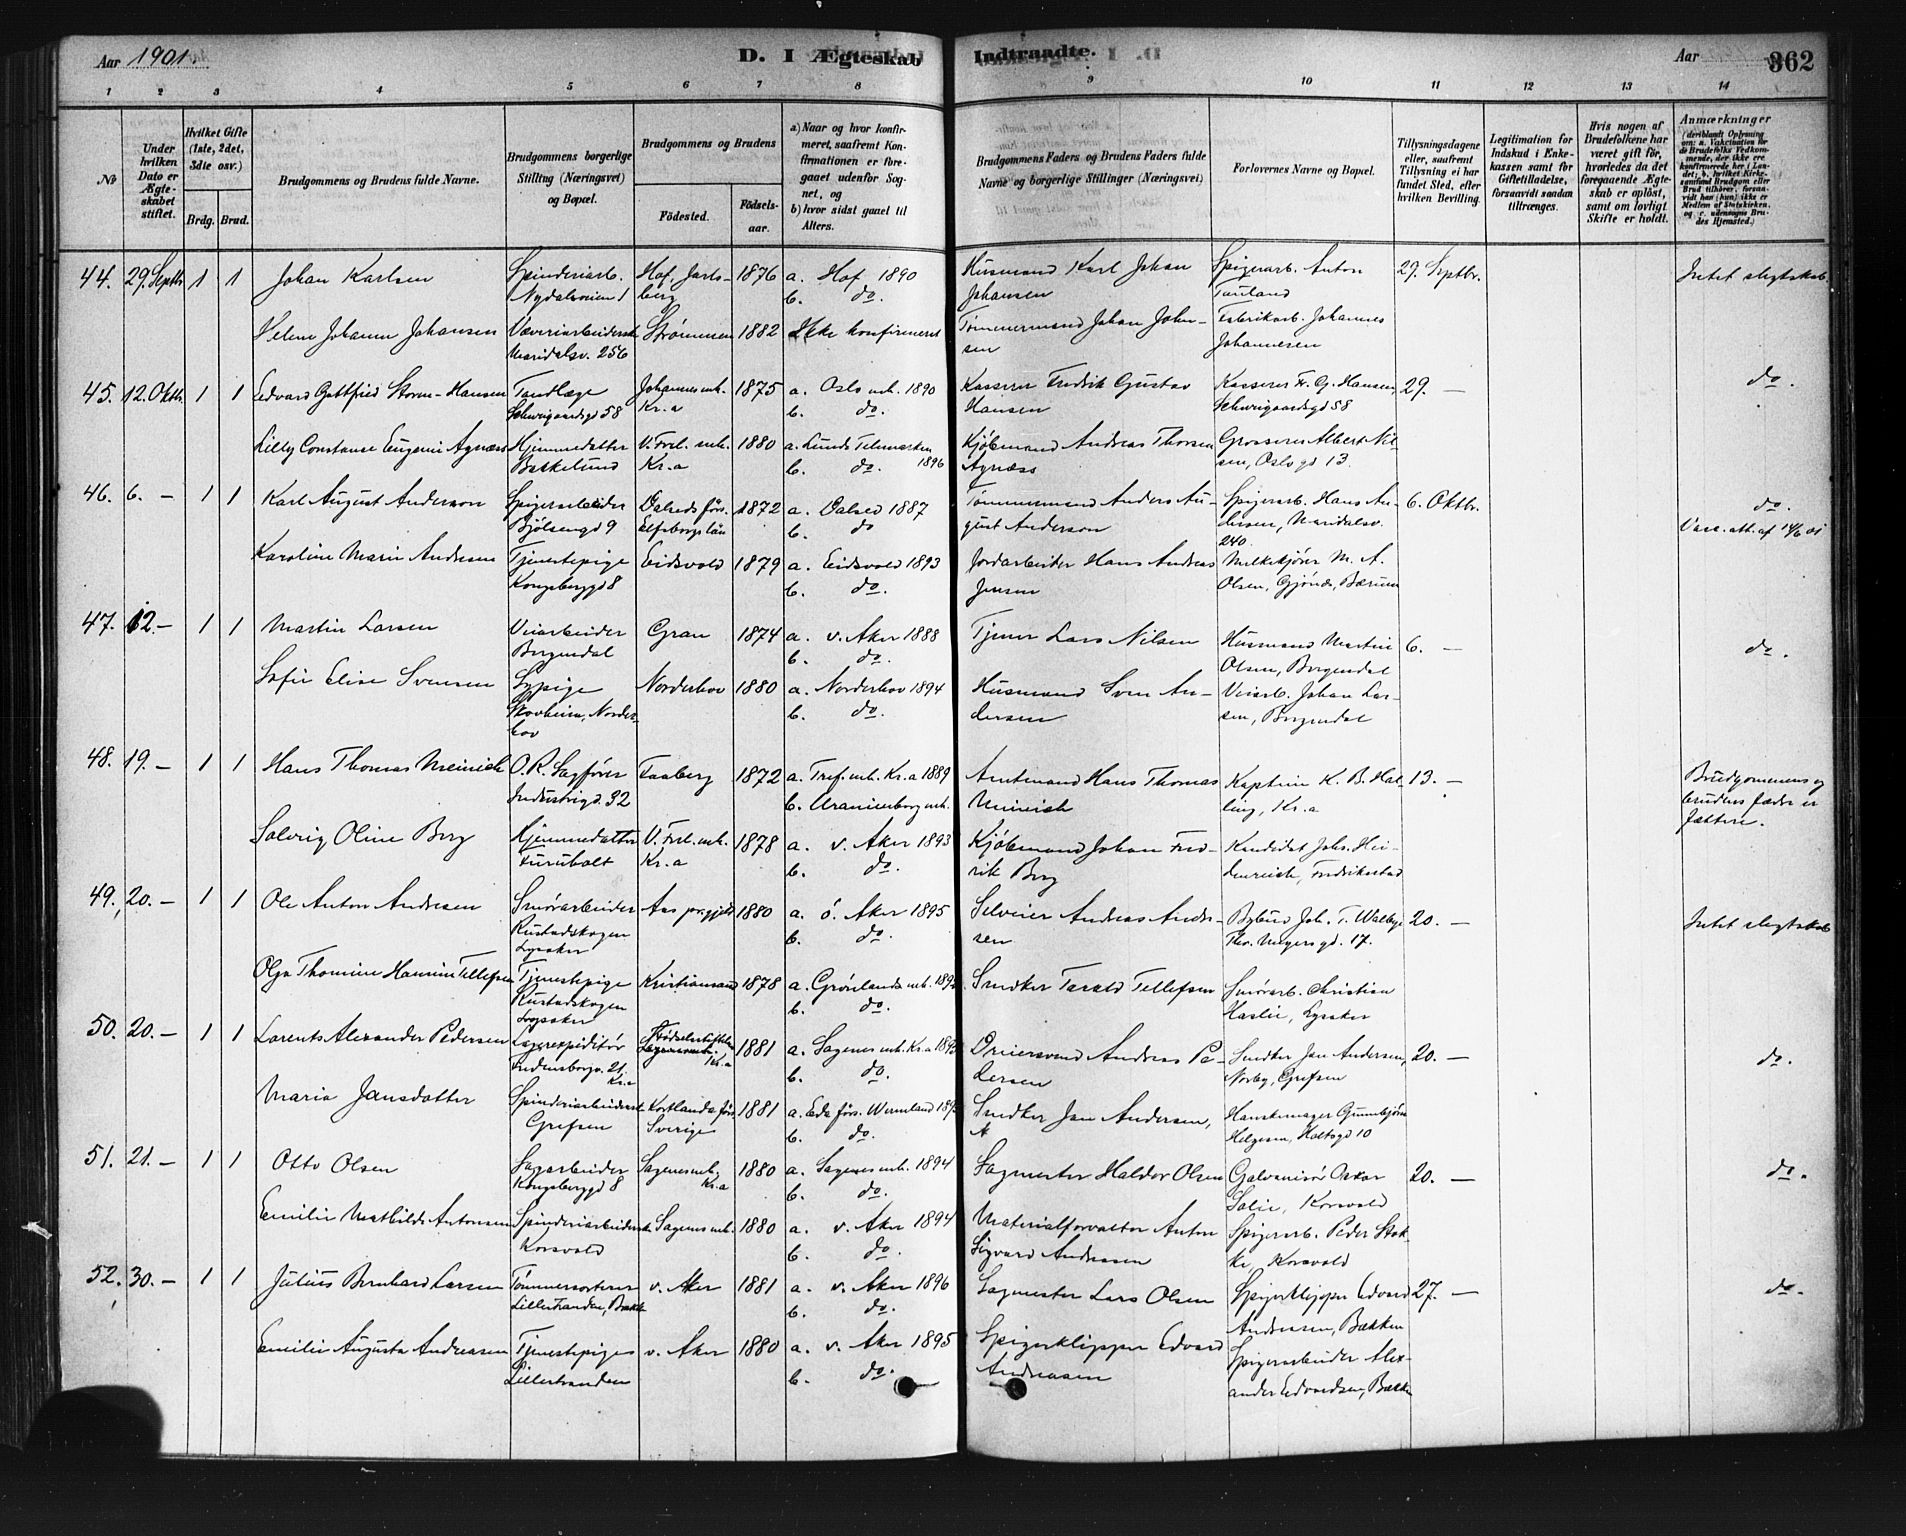 Aar 1901. D. I Ægteskab Indtraadte. Aar 362
1 2 3 4 5 6 7 8 9 10 11 12 13 14
No
Under hvilken Dato er Ægteskabet stiftet.
Hvilket Gifte (1ste, 2det, 3die osv.)
Brdg. Brud.
Brudgommens og Brudens fulde Navne.
Brudgommens borgerlige Stilling (Næringsvei) og Bopæl.
Brudgommens og Brudens
Födested. Födselsaar.
a) Naar og hvor konfirmeret, saafremt Konfirmationen er foregaaet udenfor Sognet, og
b) hvor sidst gaaet til Alters.
Brudgommens Faders og Brudens Faders fulde Navne og borgerlige Stillinger (Næringsvei)
Forlovernes Navne og Bopæl.
Tillysningsdagene eller, saafremt Tillysning ei har fundet Sted, efter hvilken Bevilling.
Legitimation for Indskud i Enkekassen samt for Giftetilladelse, forsaavidt saadan tiltrænges.
Hvis nogen af Brudefolkene har været gift för, hvorledes da det foregaaende Ægteskab er oplöst, samt om lovligt Skifte er holdt.
Anmærkninger
44. 29. Septbr. 1 1 Johan Karlsen Spinderiarb. Nydalsveien 1 Hof, Jarlsberg 1876 a. Hof 1890 b. do. Husmand Karl Johan Johansen Spigerarb. Anton Tauland 29. Septbr. Intet slegtskab.
Helene Johanne Johansen Væveriarbeiderske Maridalsv. 256 Strømmen 1882 Ikke konfirmeret Tømmermand Johan Johnsen Fabrikarb. Johannes Johannesen
45. 12. Oktb. 1 1 Edvard Gottfried Storm-Hansen Tandlæge Schweigaardsgd 58 Johannes mh. Kr.a 1875 a. Oslo mh. 1890 b. do. Kasserer Fredrik Gustav Hansen Kasserer Fr. G. Hansen, Schweigaardsgd 58 29. — do.
Lilly Constanse Eugenie Agnæss Hjemmedatter Bækkelund V. Frel. mh. Kr.a 1880 a. Lunds Telemarken 1896 b. do. Kjøbmand Andreas Thorsen Agnæss Grosserer Albert Nilsen, Oslogd 13.
46. 6. — 1 1 Karl August Anderson Spigerarbeider Bjølsengd 9 Valreds förs. Elfsborgs län 1872 a. Valsed 1887 b. do Tømmermand Anders August Anderson Spigerarb. Hans Andersen, Maridalsv. 240. 6. Oktbr. do. Vacc. att. af 14/6 01
Karoline Marie Andresen Tjenestepige Kongsberggd 8 Eidsvold 1879 a. Eidsvold 1893 b. do. Jordarbeider Hans Andreas Jensen Melkekjører M. A. Olsen, Gjønes, Bærum
47. 12. — 1 1 Martin Larsen Veiarbeider Borgendal Gran 1874 a. v. Aker 1888 b. do. Tjener Lars Nilsen Husmand Martin Olsen, Borgendal 6. — do.
Sofie Elise Svensen Sypige Skovheim, Norderhov Norderhov 1880 a. Norderhov 1894 b. do. Husmand Sven Andersen Veiarb. Johan Larsen, Borgendal
48. 19. — 1 1 Hans Thomas Meinich O.R. Sagfører Industrigd. 32 Faaberg 1872 a. Tref. mh. Kr.a 1889 b. Uranienborg mh. Amtmand Hans Thomas Meinich Kaptein K. B. Halling, Kr.a 13. — Brudgommens og brudens fædre er fættere.
Solveig Oline Borg Hjemmedatter Furuholt V. Frel. mh. Kr.a 1878 a. v. Aker 1893 b. do. Kjøbmand Johan Fredrik Borg Kandidat Johs. Heidenreich, Fredrikstad
49. 20. — 1 1 Ole Anton Andresen Smörarbeider Rustadskogen Lysaker Aas prgjeld 1880 a. ö. Aker 1895 b. do. Selveier Andreas Andersen Bybud Joh. T. Walbye Thv. Meyersgd. 17. 20. — Intet slegtskab
Olga Thomine Hansine Tellefsen Tjenestepige Rustadskogen Lysaker Kristiansand 1878 a. Grønlands mh. b. do. Smedker Tarald Tellefsen Smörarb. Christian Haslie, Lysaker
50. 20. — 1 1 Lorents Alexander Pedersen Lagerexpeditör Fredensborgv. 21. Kr.a Fødselsstiftelsen Kr.a 1881 a. Sagenes mh. Kr.a b. do. Dreiersvend Andreas Pedersen Snedker Jan Andersen, Norby, Grefsen 20. — do.
Maria Jansdotter Spinderiarbeiderske Grefsen Kortlanda förs. Sverige 1881 a. Eda förs. Wermland b. do. Snedker Jan Andersen, Hanskemager Gunnbjörn Helgesen, Holtsgd 10
51. 21. — 1 1 Otto Olsen Sagarbeider Kongsberggd 8 Sagenes mh. Kr.a 1880 a. Sagenes mh. 1894 b. do. Sagmester Haldor Olsen Galvanisør Oskar Solie, Korsvold 20. — do.
Emilie Mathilde Antonsen Spinderiarbeiderske Korsvold Sagenes mh. 1880 a. v. Aker 1894 b. do. Materialforvalter Anton Sigvard Andreasen Spigerarb. Peder Stokke, Korsvold
52. 30. — 1 1 Julius Bernhard Larsen Tømmersorterer Lillestranden, Bække v. Aker 1881 a. v. Aker 1896 b. do. Sagmester Lars Olsen Spigerklipper Edvard Andreasen, Bækken 27. — do.
Emilie Augusta Andreasen Tjenestepige Lillestranden v. Aker 1880 a. v. Aker 1895 b. do. Spigerklipper Edvard Andreasen Spigerarbeider Alexander Edvardsen, Bækken